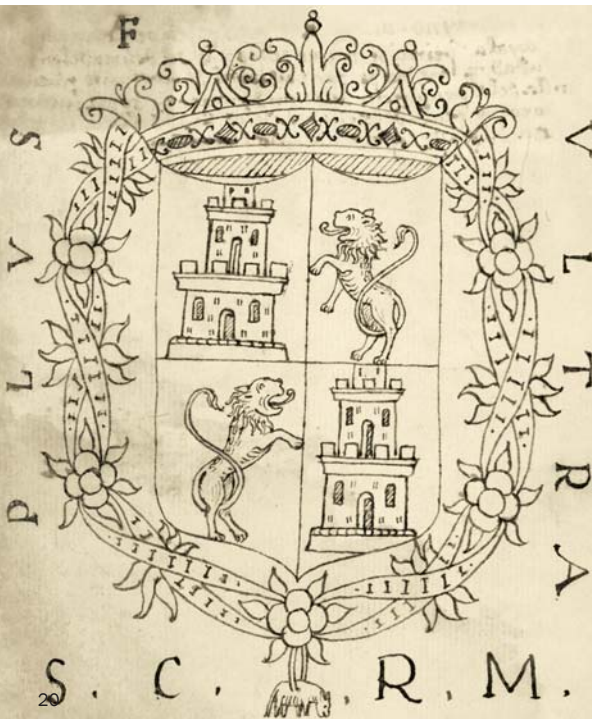 F
PLVS
VLTRA
S. C. R. M.
20